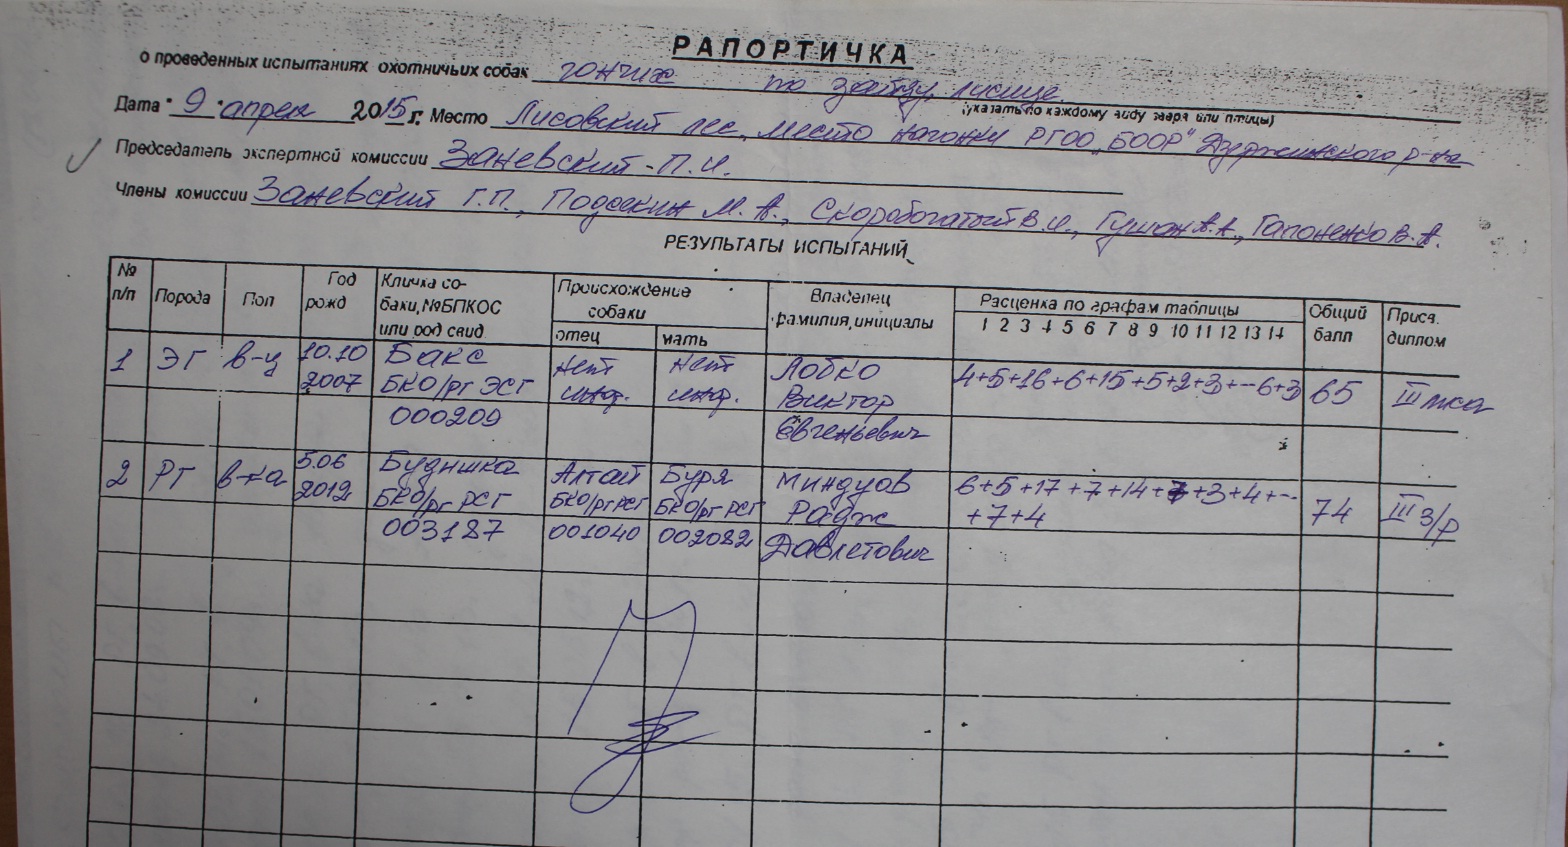 РАПОРТИЧКА
о проведенных испытаниях охотничьих собак гончих по зайцу, лисице
(указать по каждому виду зверя или птицы)
Дата "9" апреля 2015 г. Место Лисовский лес, место нагонки РГОО "БООР" Дзержинского р-на
Председатель экспертной комиссии Заневский П.И.
Члены комиссии Заневский Г.П., М.А., Скоробогатый В.И., А.А., Гапоненко В.А.
РЕЗУЛЬТАТЫ ИСПЫТАНИЙ
№ п/п Порода Пол Год рожд Кличка собаки, №БПКОС или род свид Происхождение собаки отец мать Владелец фамилия, инициалы Расценка по графам таблицы 1 2 3 4 5 6 7 8 9 10 11 12 13 14 Общий балл Присв. диплом
1 ЭГ в-ц 10.10 Бакс нет нет Лобко 4+5+16+6+15+5+2+3+-6+3 65 III лиса
2007 БКО/рг ЭСГ инф. инф. Виктор
000209 Евгеньевич
2 РГ в-ка 5.06 Будишка Алтай Буря Миндуов 6+5+17+7+14+7+3+4+-- 74 III з/р
2012 БКО/рг РСГ БКО/рг РСГ БКО/рг РСГ Радж +7+4
003187 001040 002082 Давлетович